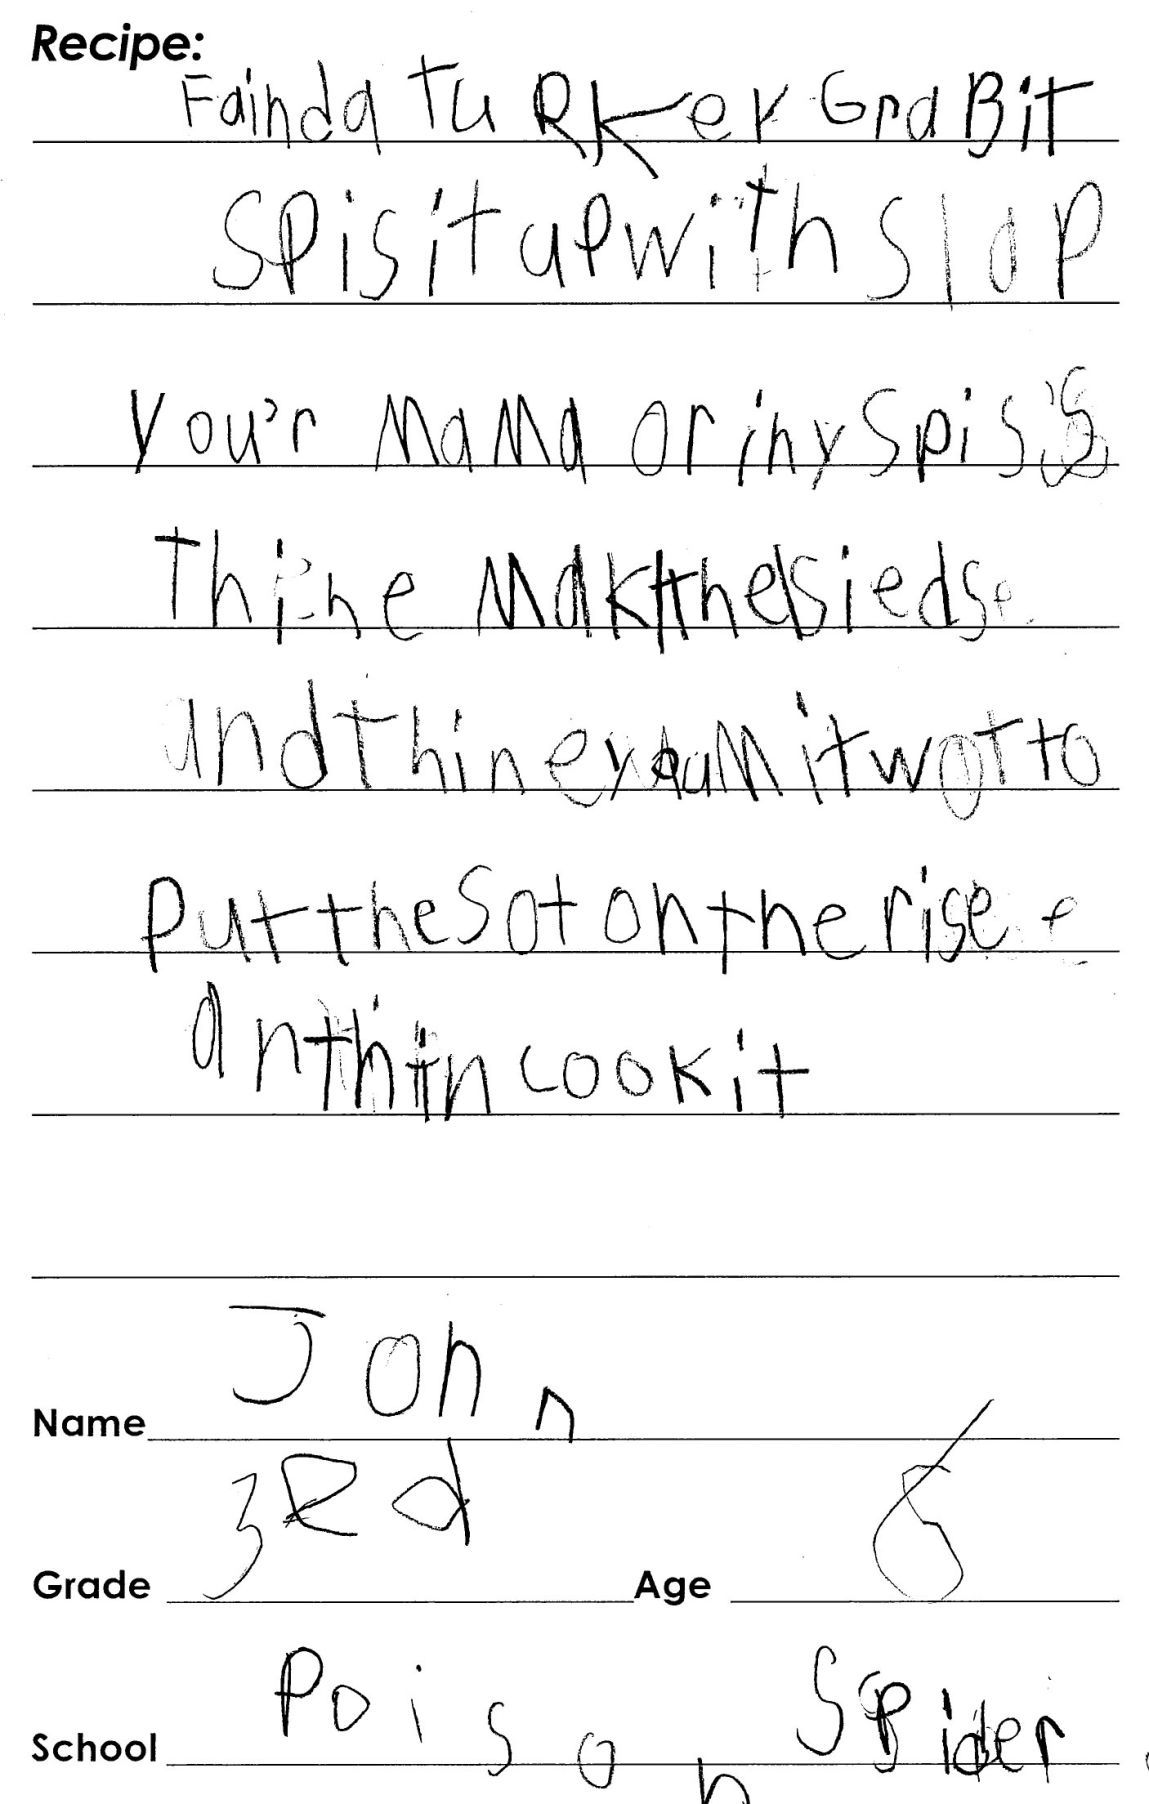 Recipe:
Fainda TuRKey GraBit
SPisitupwith slap
your'r MaMa orinyspis's
Thine MakthesiedSe
andthineyoumitwotto
PuttheSotontherise
anthin cookit
Name John
Grade 3Rd Age 8
School Poison Spider